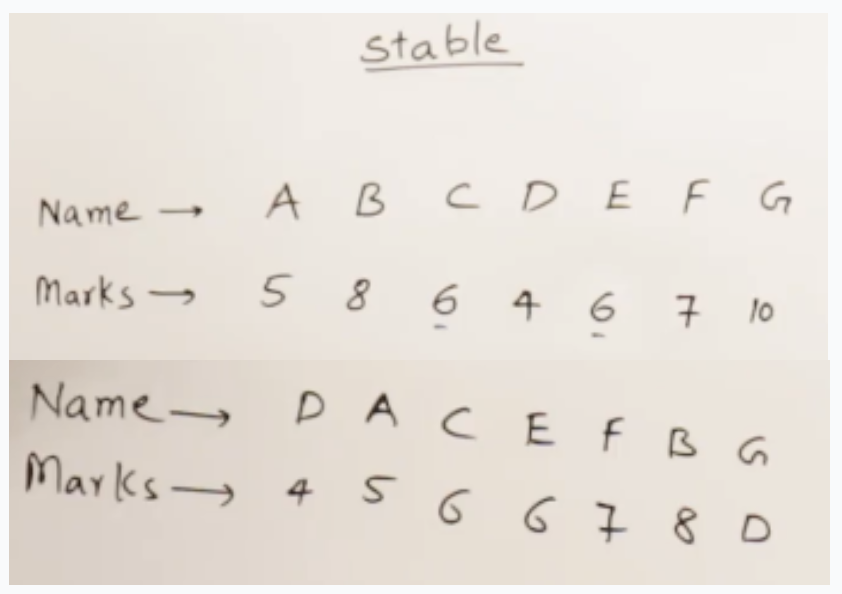 Stable
Name → A B C D E F G
Marks → 5 8 6 4 6 7 10
Name → D A C E F B G
Marks → 4 5 6 6 7 8 D